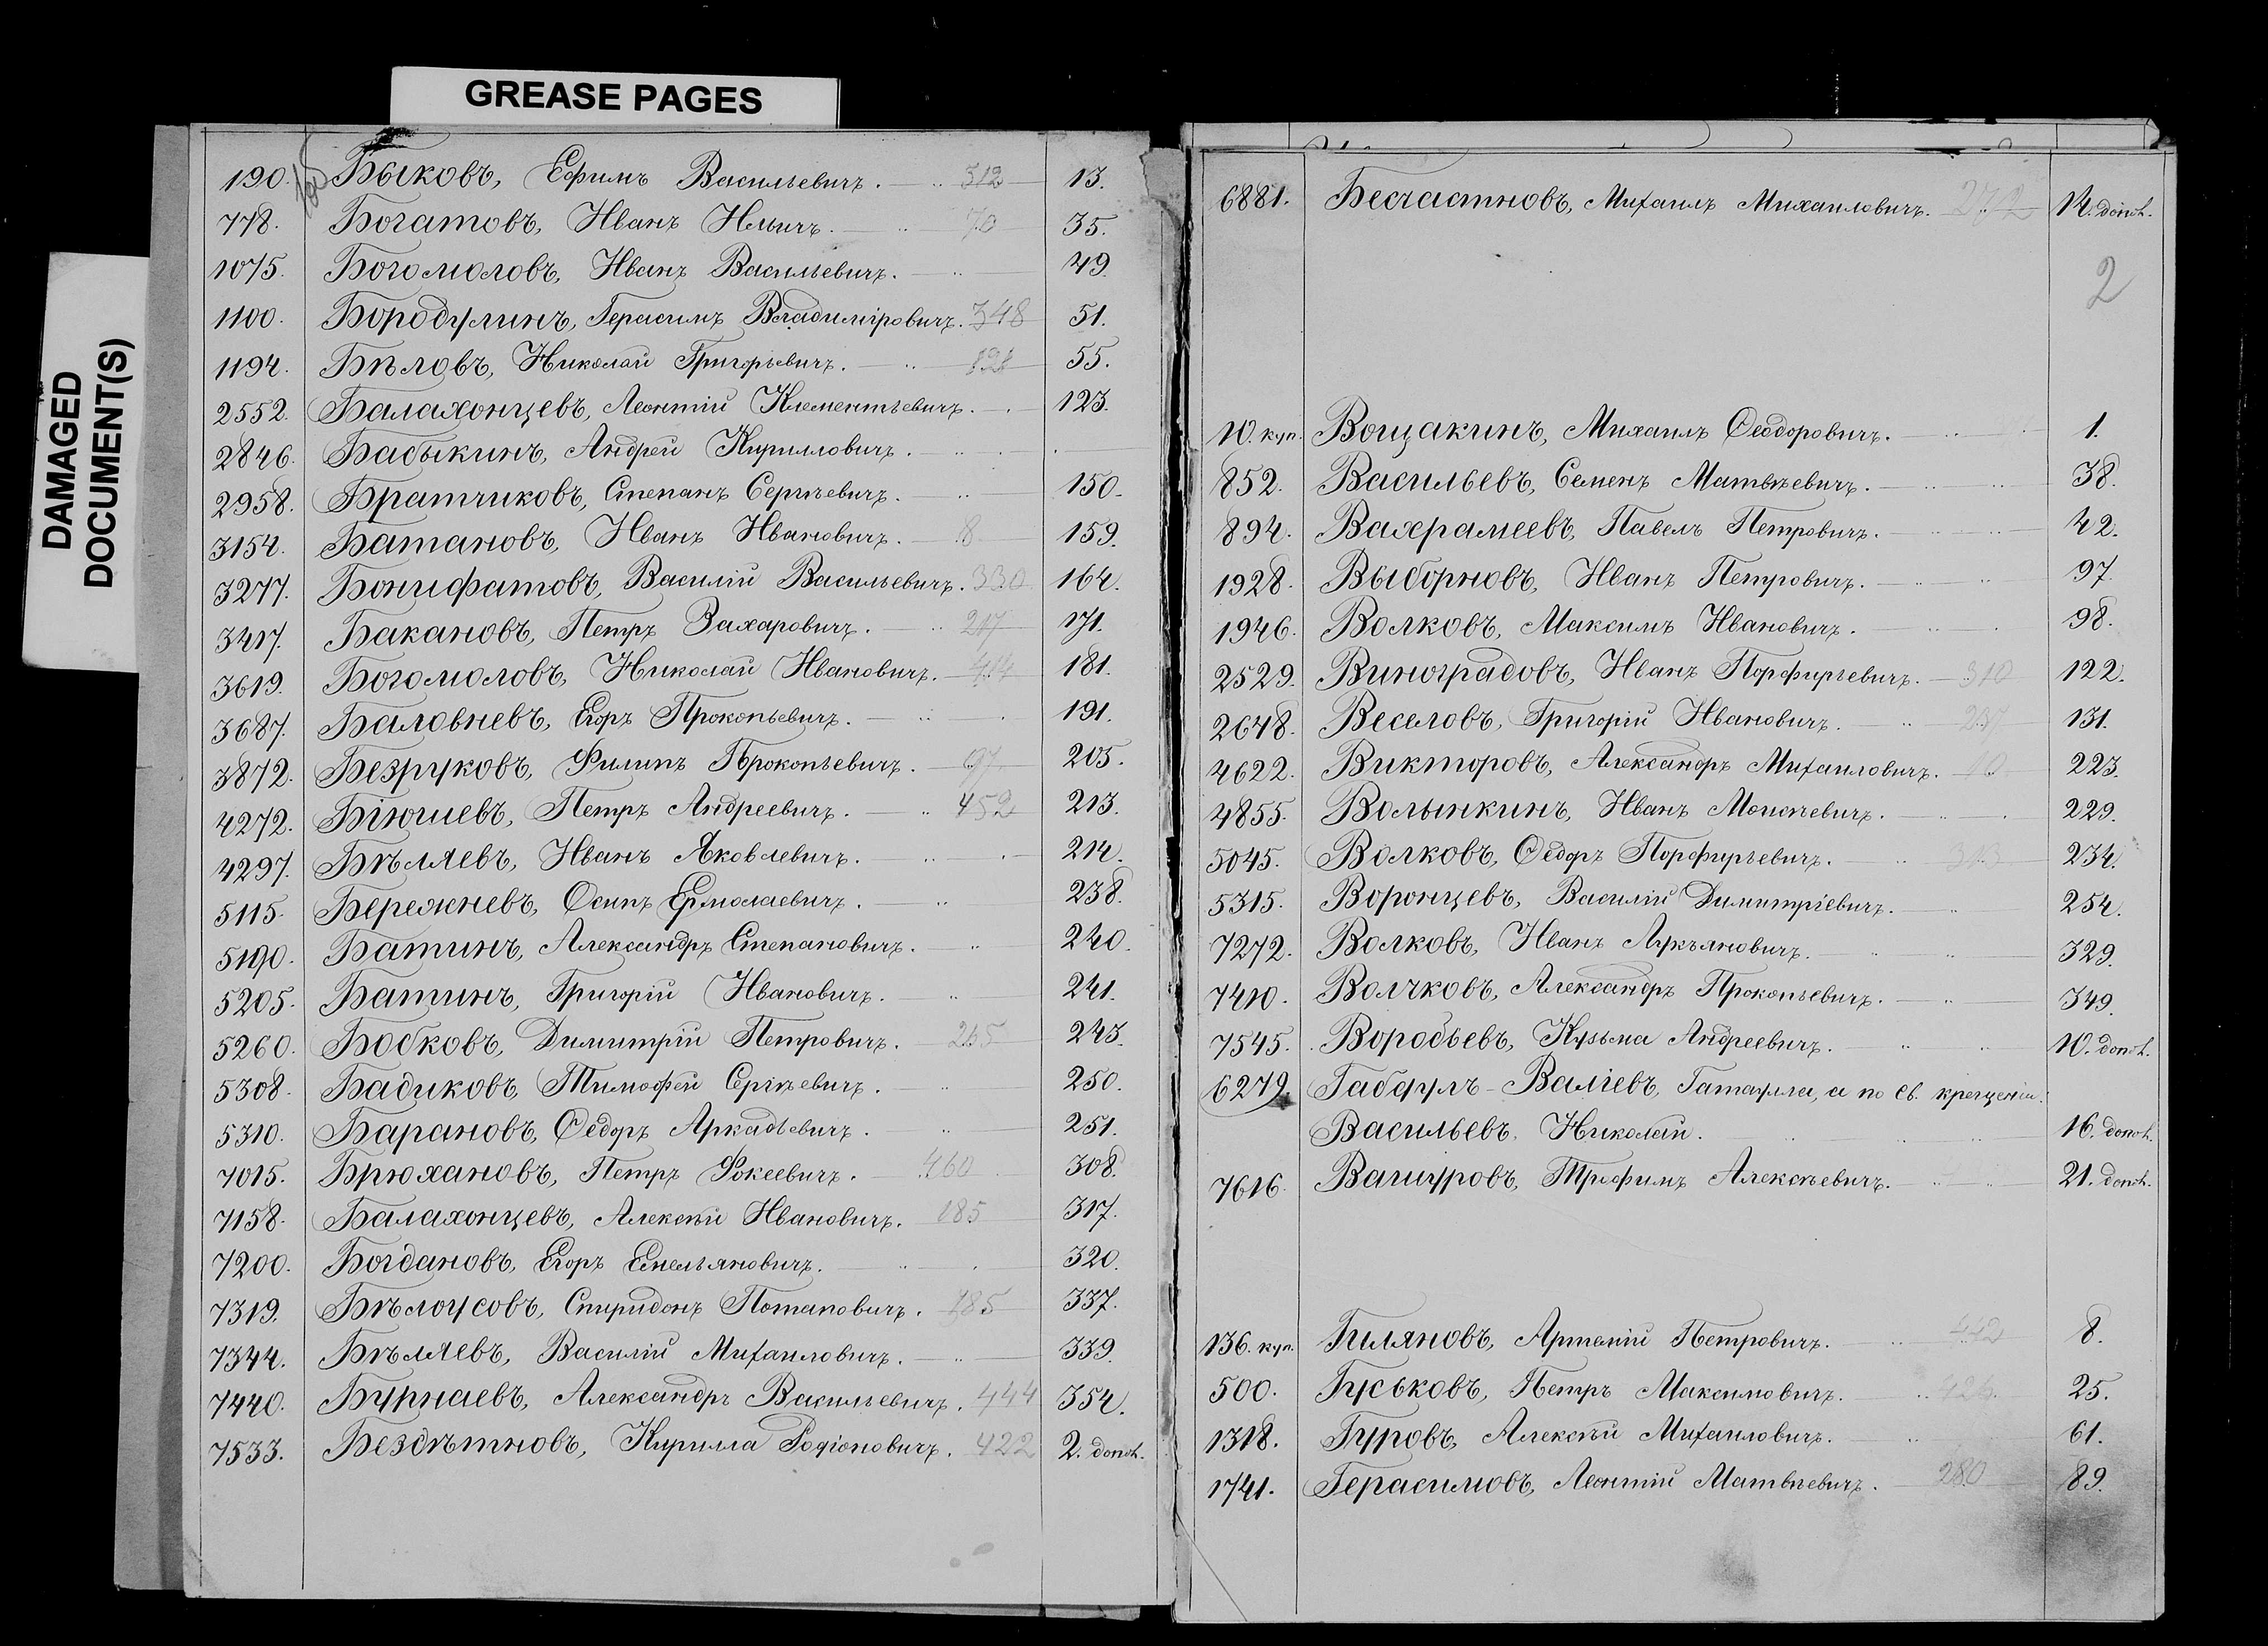 GREASE PAGES
DAMAGED
DOCUMENT(S)
190. Быковъ, Ефимъ Васильевичъ. 312 13.
778. Богатовъ, Иванъ Ильичъ. 70 35.
1075. Богомоловъ, Иванъ Васильевичъ. 49.
1100. Бородулинъ, Герасимъ Владиміровичъ. 348 51.
1194. Бѣловъ, Николай Григорьевичъ. 55.
2552. Балахонцевъ, Леонтій Клементьевичъ. 123.
2846. Бабыкинъ, Андрей Кирилловичъ.
2958. Братчиковъ, Степанъ Сергѣевичъ. 150.
3154. Батановъ, Иванъ Ивановичъ. 8 159.
3277. Бонифатовъ, Василій Васильевичъ. 330 164.
3417. Бакановъ, Петръ Захаровичъ. 217 171.
3619. Богомоловъ, Николай Ивановичъ. 414 181.
3687. Баловневъ, Егоръ Прокопьевичъ. 191.
3872. Безруковъ, Филипъ Прокопьевичъ. 97 205.
4272. Бігюшевъ, Петръ Андреевичъ. 452 213.
4297. Бѣляевъ, Иванъ Яковлевичъ. 214.
5115. Бережневъ, Осипъ Ермолаевичъ. 238.
5190. Батинъ, Александръ Степановичъ. 240.
5205. Батинъ, Григорій Ивановичъ. 241.
5260. Бобковъ, Димитрій Петровичъ. 265 243.
5308. Бадиковъ, Тимофей Сергѣевичъ. 250.
5310. Барановъ, Ѳедоръ Аркадьевичъ. 251.
7015. Брюхановъ, Петръ Фокеевичъ. 460 308.
7158. Балахонцевъ, Алексѣй Ивановичъ. 185 317.
7200. Богдановъ, Егоръ Емельяновичъ. 320.
7319. Бѣлоусовъ, Спиридонъ Потаповичъ. 185 337.
7344. Бѣляевъ, Василій Михаиловичъ. 339.
7440. Бурнаевъ, Александръ Васильевичъ. 444 354.
7533. Бездѣтновъ, Кирилла Родіоновичъ. 422 2. допол.
6881. Бесчастновъ, Михаилъ Михаиловичъ. 272 14. допол.
2
10. куп. Вощакинъ, Михаилъ Ѳеодоровичъ. 1.
852. Васильевъ, Семенъ Матвѣевичъ. 38.
894. Вахрамеевъ, Павелъ Петровичъ. 42.
1928. Выборновъ, Иванъ Петровичъ. 97.
1946. Волковъ, Максимъ Ивановичъ. 98.
2529. Виноградовъ, Иванъ Порфирьевичъ. 310 122.
2648. Веселовъ, Григорій Ивановичъ. 131.
4622. Викторовъ, Александръ Михаиловичъ. 223.
4855. Волынкинъ, Иванъ Моисѣевичъ. 229.
5045. Волковъ, Ѳедоръ Порфирьевичъ. 234.
5315. Воронцевъ, Василій Димитріевичъ. 254.
7272. Волковъ, Иванъ Лукьяновичъ. 329.
7410. Волчковъ, Александръ Прокопьевичъ. 349.
7545. Воробьевъ, Кузьма Андреевичъ. 10. допол.
6279. Габдулъ-Валіевъ, Гатаулла, а по Св. крещенію:
Васильевъ, Николай. 16. допол.
7616. Вашуровъ, Трифимъ Алексѣевичъ. 21. допол.
136. куп. Гиляновъ, Артемій Петровичъ. 442 8.
500. Гуськовъ, Петръ Максимовичъ. 25.
1318. Гуровъ, Алексѣй Михаиловичъ. 61.
1741. Герасимовъ, Леонтій Матвѣевичъ. 280 89.